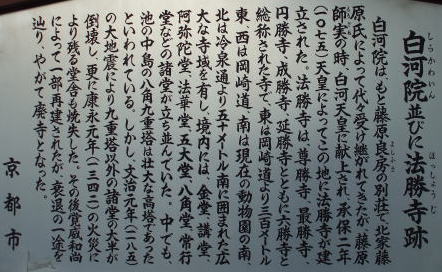 しらかわいん
ほっしょうじ
白河院並びに法勝寺跡
白河院は、もと藤原良房の別荘で、北家藤
よしふさ
原氏によって代々受け継がれてきたが、藤原
師実の時、白河天皇に献上され、承保二年
(一〇七五)天皇によってこの地に法勝寺が建
立された。法勝寺は、尊勝寺、最勝寺、
円勝寺、成勝寺、延勝寺とともに六勝寺と
総称された寺で、東は岡崎道より三百メートル
東、西は岡崎道、南は現在の動物園の南、
北は冷泉通より五十メートル南に囲まれた広
大な寺域を有し、境内には、金堂、講堂、
阿弥陀堂、法華堂、五大堂、八角堂、常行
堂などの諸堂が立ち並んでいた。中でも、
池の中島の八角九重塔は壮大な高塔であった
といわれている。しかし、文治元年(一一八五)
の大地震により九重塔以外の諸堂の大半が
倒壊し、更に康永元年(一三四二)の火災に
より残る堂舎も焼失した。その後豊威和尚
によって一部再建されたが、衰退の一途を
辿り、やがて廃寺となった。
京都市